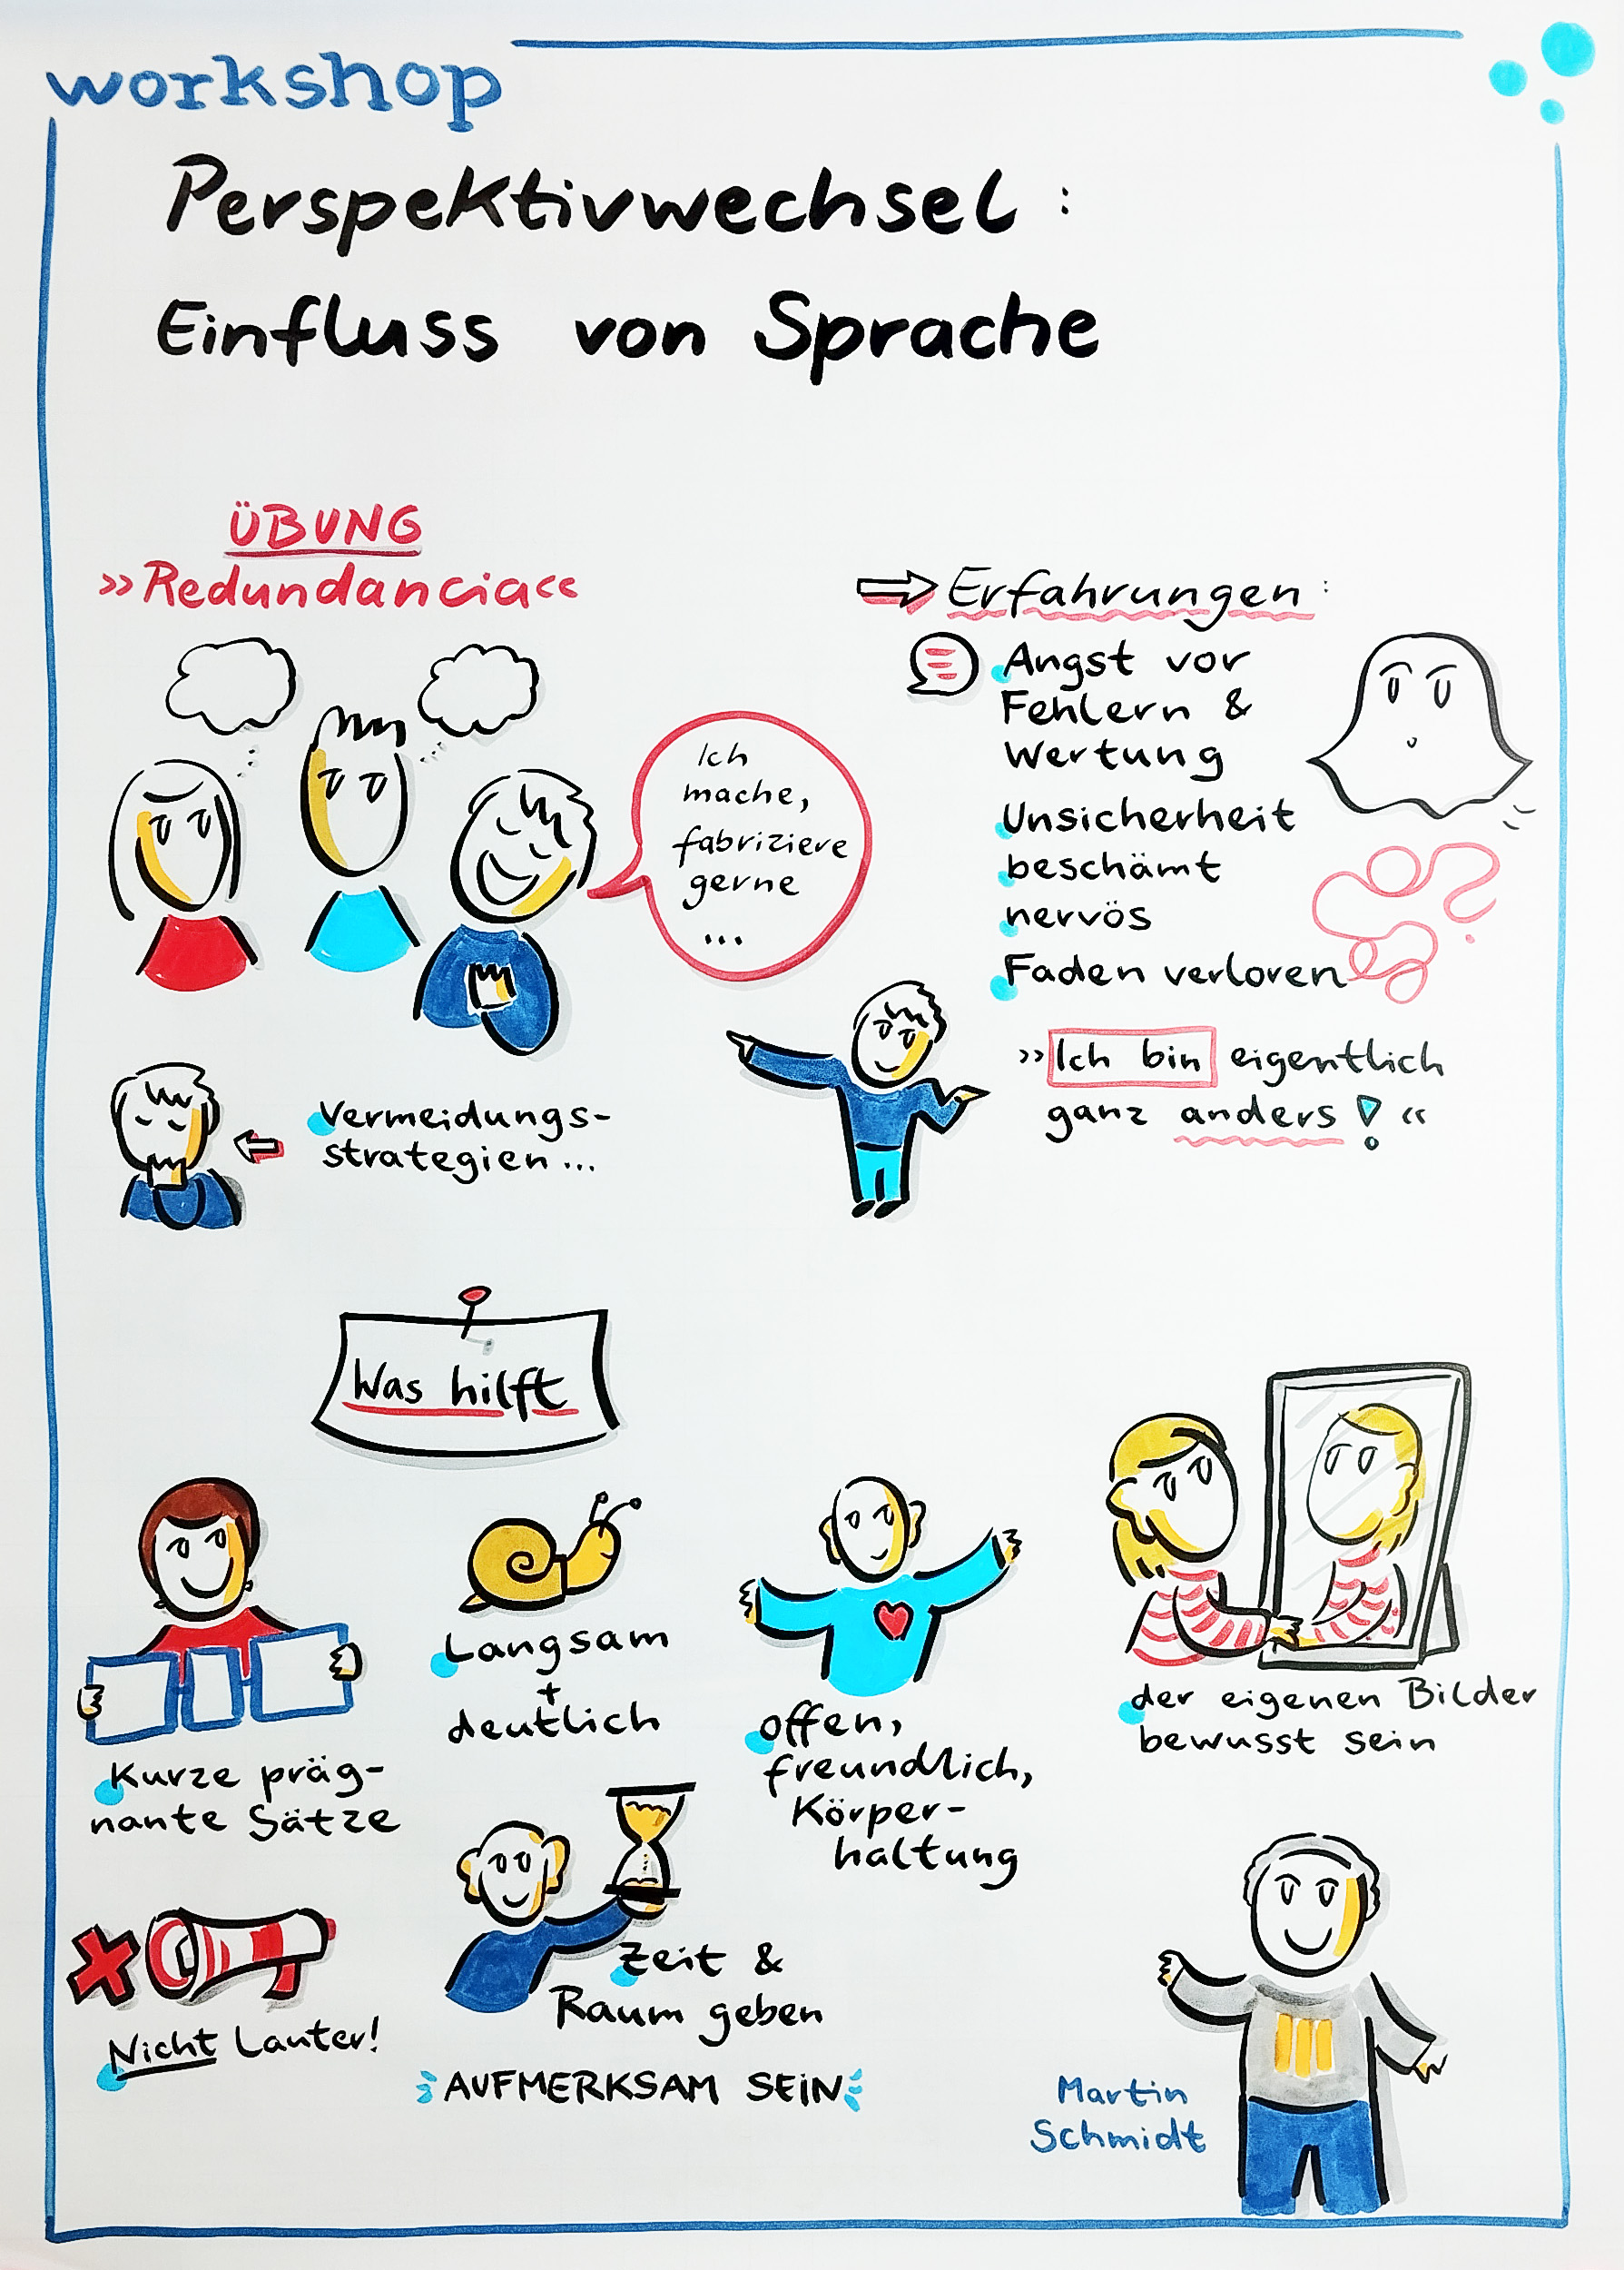 workshop
Perspektivwechsel:
Einfluss von Sprache
ÜBUNG
»Redundancia«
Ich
mache,
fabriziere
gerne
...
Vermeidungs-
strategien...
Erfahrungen:
Angst vor
Fehlern &
Wertung
Unsicherheit
beschämt
nervös
Faden verloren
»Ich bin eigentlich
ganz anders! «
Was hilft
Kurze präg-
nante Sätze
Langsam
+
deutlich
offen,
freundlich,
Körper-
haltung
der eigenen Bilder
bewusst sein
Nicht Lauter!
Zeit &
Raum geben
AUFMERKSAM SEIN
Martin
Schmidt